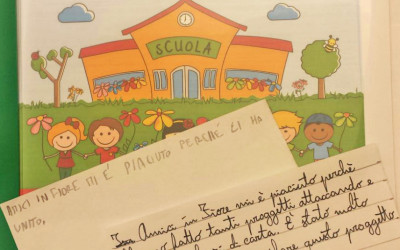 SCUOLA
AMICI IN FIORE MI È PIACIUTO PERCHÉ CI HA
UNITO.
Amici in Fiore mi è piaciuto perchè
fatto tanti proggetti attaccando e
di carta. È stato molto
questo progetto